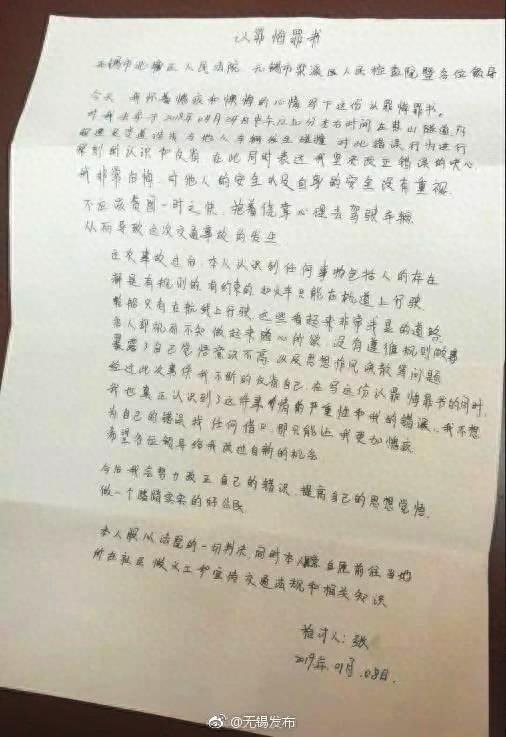 认罪悔罪书
无锡市梁溪区人民法院 无锡市梁溪区人民检查院暨各位领导
今天 我怀着愧疚和懊悔的心情写下这份认罪悔罪书。
对我去年于2018年 左右时间在惠山隧道
交通 与他人车辆发生碰撞 对此错误行为进行
深刻的认识和反省 在此同时表达我坚决改正错误的决心
我非常自悔 对他人的安全以及自身的安全没有重视
不应该贪图一时之快 抱着侥幸心理去驾驶车辆
从而导致这次交通事故的发生
这次事故过后 本人认识到任何事物包括人的存在
都是有规则的 有约束的 如火车只能在轨道上行驶
轮船只有在航线上行驶 这些看起来非常浅显的道路
本人却视而不知 做起来随心所欲 没有遵循规则做事
暴露了自己觉悟意识不高 以及思想作风涣散等问题
经过此次事件我不断的反省自己 在写这份认罪悔罪书的同时
我也真正认识到了这件事情的严重性和我的错误 我不想
为自己的错误找任何借口 那只能让我更加愧疚
希望各位领导给我改过自新的机会
今后我会努力改正自己的错误 提高自己的思想觉悟
做一个踏踏实实的好公民
本人服从法庭的一切判决 同时本人 自愿前往当地
所在社区做义工和宣传交通法规和相关知识
检讨人：张
2019年.01月.08日.
@无锡发布